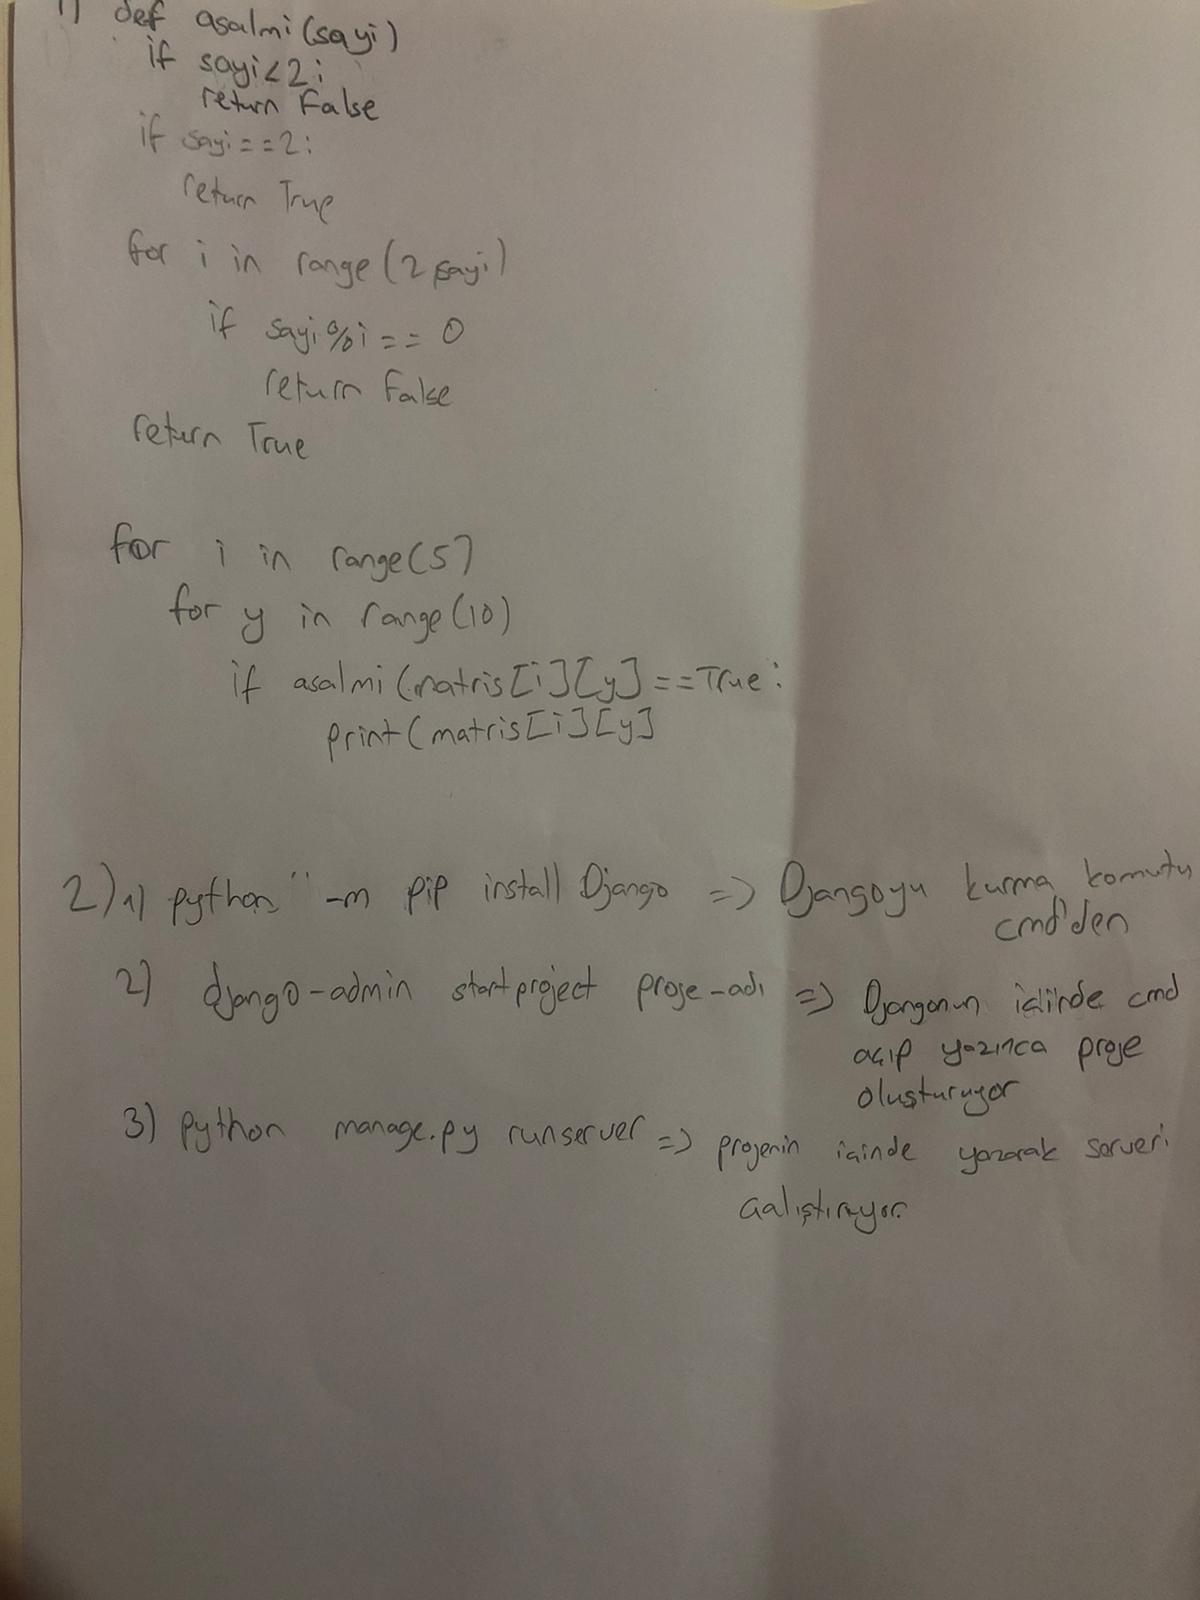 1) def asalmi(sayi)
if sayi<2:
return False
if sayi==2:
return True
for i in range(2 sayi)
if sayi%i == 0
return False
return True
for i in range(5)
for y in range(10)
if asalmi(matris[i][y]==True:
print(matris[i][y]
2) 1) python " -m pip install Django => Djangoyu kurma komutu
cmd'den
2) django-admin startproject proje-adı => Djangonun içiinde cmd
açıp yazınca proje
oluşturuyor
3) python manage.py runserver => projenin içinde yazarak serveri
çalıştırıyor.